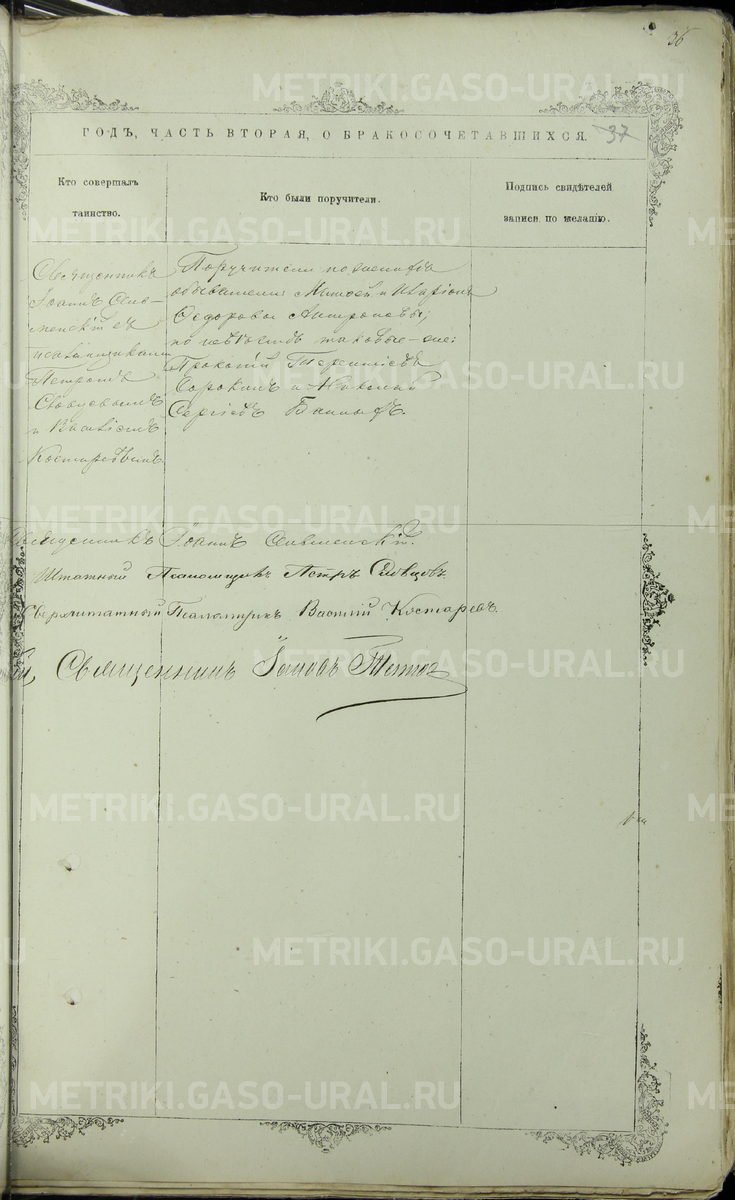 36
ГОДЪ, ЧАСТЬ ВТОРАЯ, О БРАКОСОЧЕТАВШИХСЯ.
37
Кто совершалъ
таинство.
Кто были поручители.
Подпись свидѣтелей
записи по желанію.
Священникъ
Іоаннъ
съ
псаломщиками
Петромъ
и Василіемъ
Костаревымъ
Поручители по женихѣ
обыватели: и Иларіонъ
Ѳедоровы Антроповы;
по невѣстѣ таковые-же:
Прокопій Терентіевъ
Сорокинъ и
Сергіевъ
Священникъ Іоаннъ
Штатный Псаломщикъ Петръ Словцовъ
Сверхштатный Псаломщикъ Василій Костаревъ
Священникъ Іаковъ
METRIKI.GASO-URAL.RU